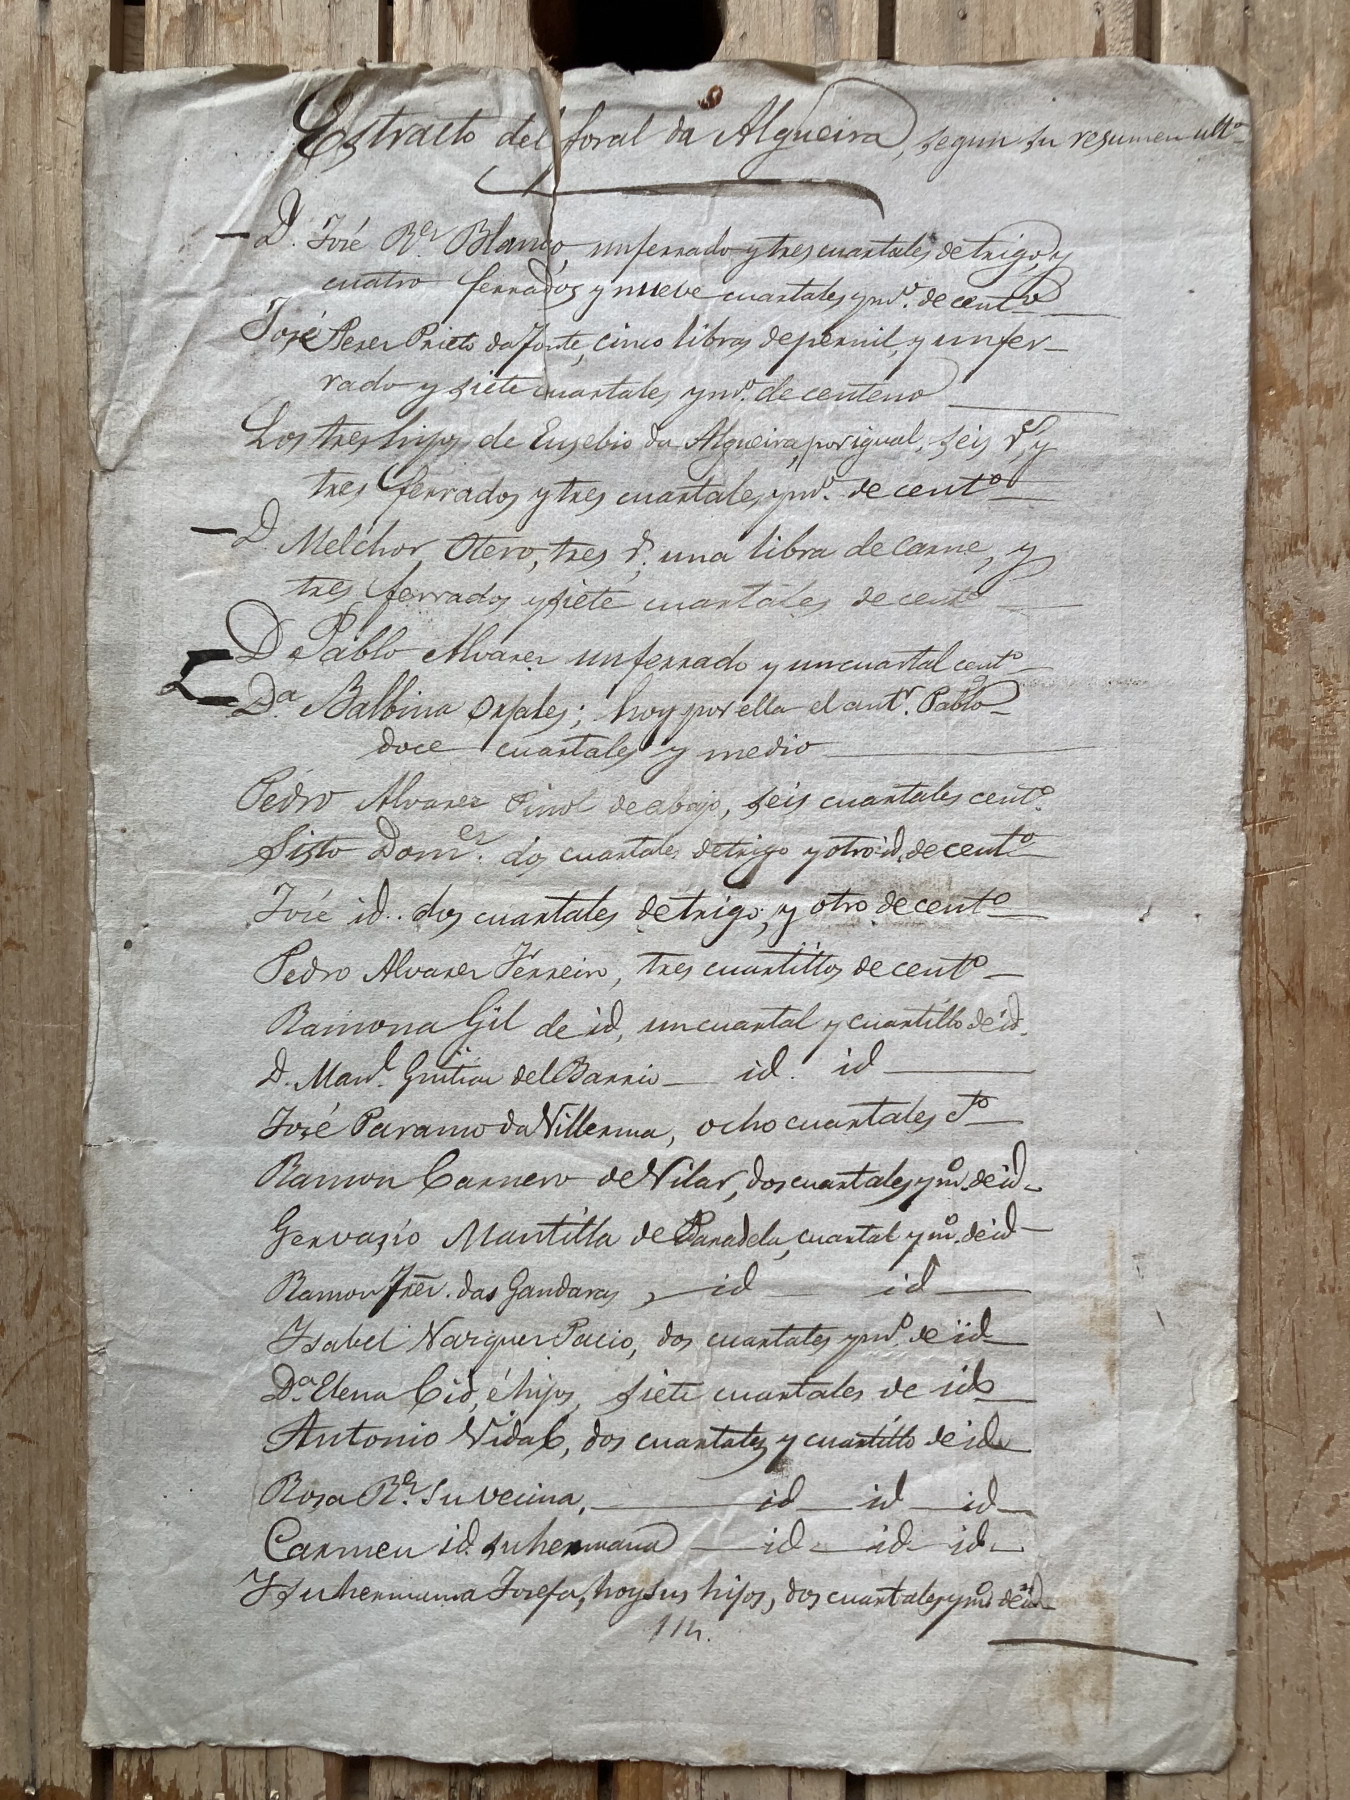 Estracto del foral da Algueira, segun su resumen ultº
D. José Rez Blanco, un ferrado y tres cuartales de trigo, y
cuatro ferrados y nueve cuartales y mº. de centº
José Perez Prieto da Fonte, cinco libras de pernil, y un fer-
rado y siete cuartales, y mº. de centeno
Los tres hijos de Eusebio da Algueira, por igual, seis rs, y
tres ferrados y tres cuartales, y mº. de centº
D. Melchor Otero, tres rs. una libra de carne, y
tres ferrados y siete cuartales de centº
D. Pablo Alvarez un ferrado y un cuartal centº
Dª Balbina; hoy por ella el antr. Pablo
doce cuartales y medio
Pedro Alvarez de abajo, seis cuartales centº.
Sisto Domez. dos cuartales de trigo y otro id. de centº
José id.. dos cuartales de trigo; y otro de centº
Pedro Alvarez Ferreiro, tres cuartillos de centº
Ramona Gil de id, un cuartal y cuartillo de id.
D. Manl. Guitian del Barrio id. id
José Paramo da Villerma, ocho cuartales ctº
Ramon Carnero de Vilar, dos cuartales y mº. de id
Gervasio Mantilla de Paradela, cuartal y mº. de id
Ramon Frez. das Gandaras, id id
Isabel Vazquez Pacio, dos cuartales y mº. de id
Dª Elena Cid, é hijos, siete cuartales de id
Antonio Vidal, dos cuartales y cuartillo de id
Rosa Rez. su vecina, id id id
Carmen id. su hermana id id id
Y su hermana Josefa, hoy sus hijos, dos cuartales y mº de id